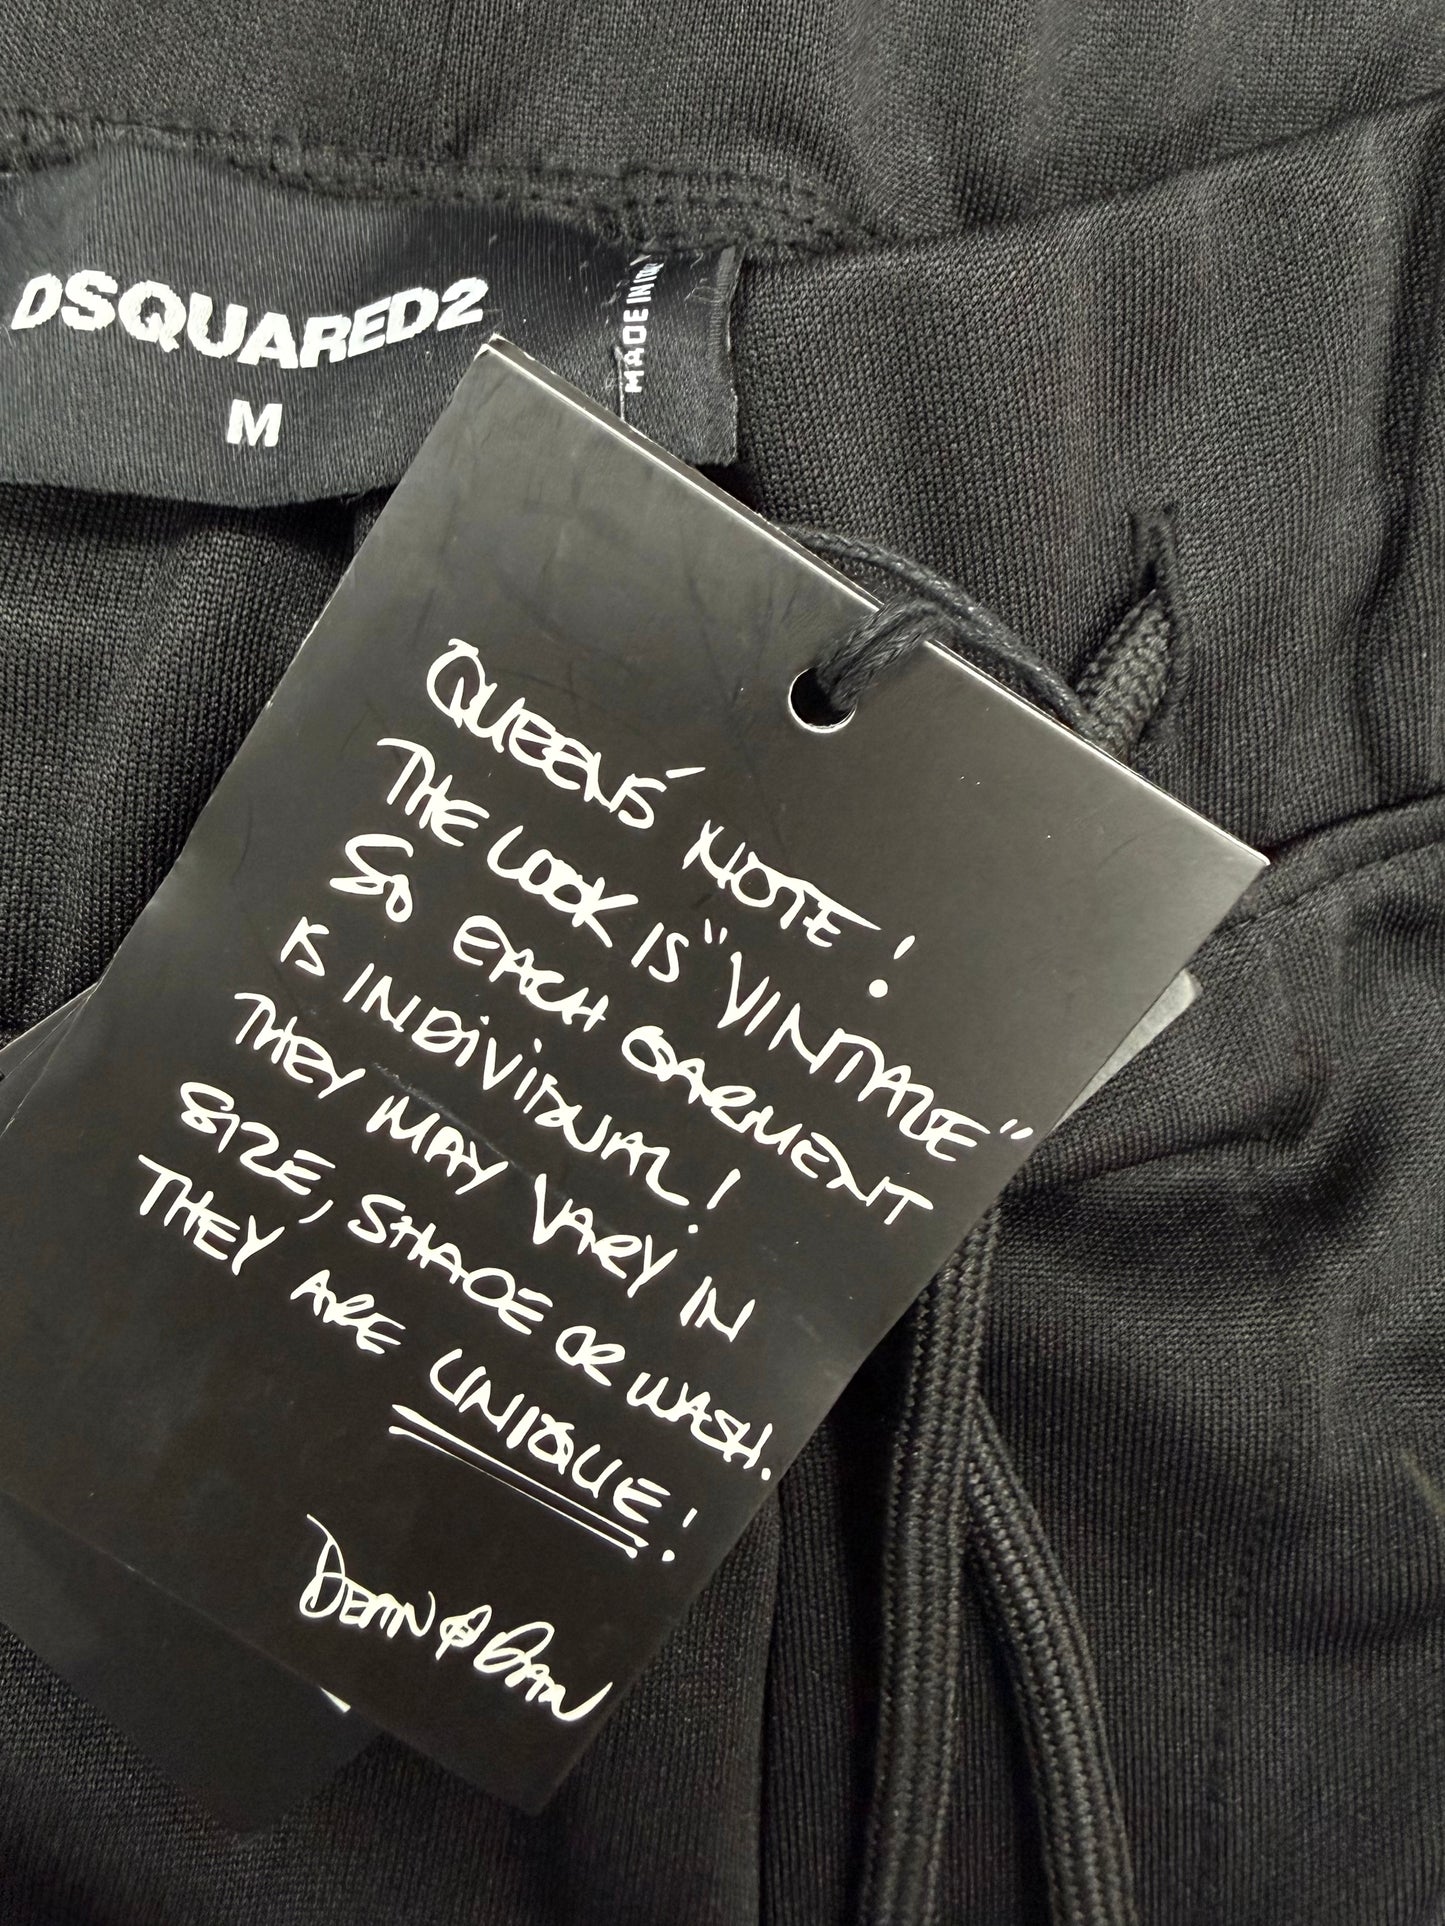 DSQUARED2
M
MADE IN ITALY
QUEENS' NOTE!
THE LOOK IS "VINTAGE"
SO EACH GARMENT
IS INDIVIDUAL!
THEY MAY VARY IN
SIZE, SHADE OR WASH.
THEY ARE UNIQUE!
DEAN & DAN